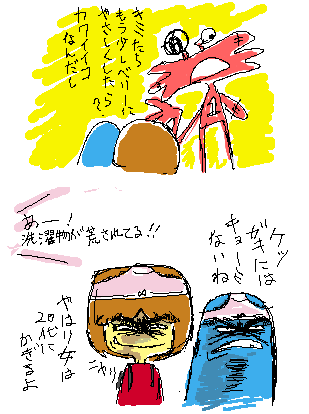 キミたち
もう少しベリーに
やさしくしたら?
カワイイコ
なんだし
あー!
洗濯物が荒されてる!!
ケッ
ガキには
キョーミ
ないね
やはり女は
20代に
かぎるよ
ニヤリ